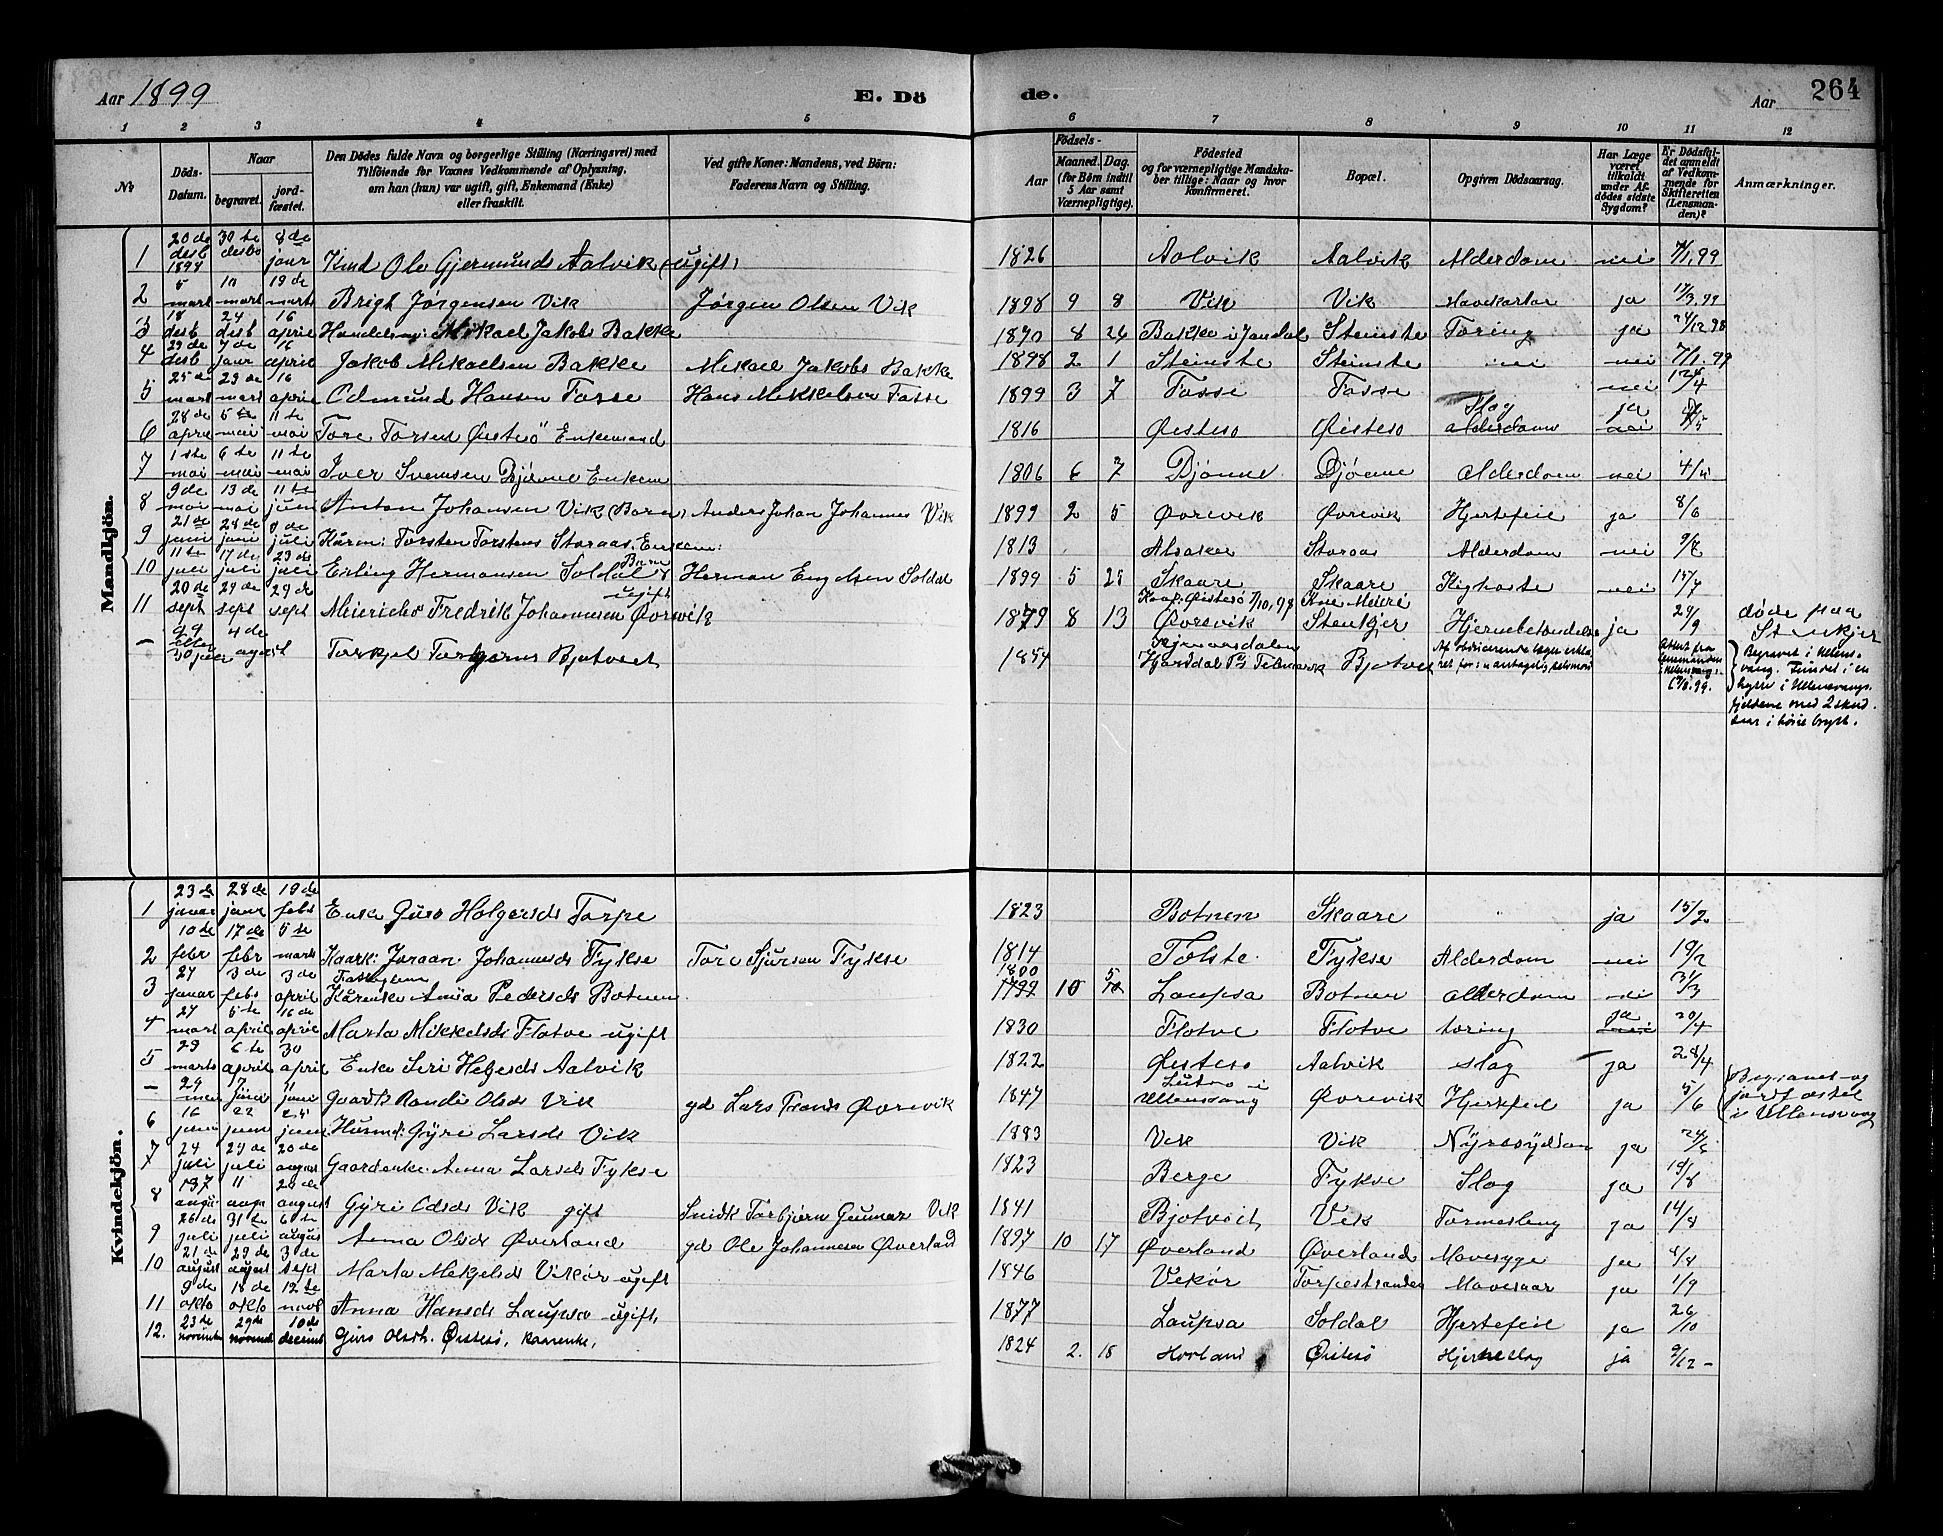 Aar 1899
E. Dö
de.
Aar
264
1 2 3 4 5 6 7 8 9 10 11 12
№
Döds-Datum.
Naar
begravet.
jordfæstet.
Den Dödes fulde Navn og borgerlige Stilling (Næringsvei) med
Tilföiende for Voxnes Vedkommende af Oplysning,
om han (hun) var ugift, gift, Enkemand (Enke)
eller fraskilt.
Ved gifte Koner: Mandens, ved Börn:
Faderens Navn og Stilling.
Födsels-
Aar
Maaned. Dag.
(for Börn indtil
5 Aar samt
Værnepligtige).
Födested
og for værnepligtige Mandska-
ber tillige: Naar og hvor
Konfirmeret.
Bopæl.
Opgiven Dödsaarsag.
Har Læge
været
tilkaldt
under Af-
dödes sidste
Sygdom?
Er Dödsfal-
det anmeldt
af Vedkom-
mende for
Skifteretten
(Lensman-
den)?
Anmærkninger.
Mandkjön.
1 20de desb 1898 30te desbr 8de janr Ole Gjermunds Aalvik (ugift) 1826 Aalvik Aalvik Alderdom nei 7/1 99
2 5 mart 10 mart 19de mart Brigt Jørgensen Vik Jörgen Olsen Vik 1898 9 8 Vik Vik ja 17/3.99
3 18 desb 24 desb 16 april Mikael Jakobs Bakke 1870 8 26 Bakke i Jondal Steinstø Tæring ja 24/12 98
4 29de desb 7de janr 16 april Jakob Mikaelsen Bakke Mikael Jakobs Bakke 1898 2 1 Steinstø Steinstø nei 7/1.99
5 25de mart 29de mart 16 april Odmund Hansen Fosse Hans Mikkelsen Fosse 1899 3 7 Fosse Fosse nei
6 28de april 5te mai 11te mai Tore Torsen Øistesö Enkemand 1816 Øistesø Øistesø Slag alderdom ja nei
7 1ste mai 6te mai 11te mai Iver Svensen Djönne Enkem 1806 6 7 Djønne Djønne Alderdom nei
8 9de mai 13de mai 11te juni Anton Johansen Vik (Barn) Anders Johan Johannes Vik 1899 2 5 Øvrevik Øvrevik Hjertefeil ja 8/6
9 21de juni 28de juni 9de juli Torsten Torstens Storaas, Enkem: 1813 Alsaker Storaas Alderdom nei
10 11te juli 17de juli 23de juli Erling Hermansen Soldal Barn Herman Engelsen Soldal 1899 5 28 Skaare Skaare Kighoste nei 15/7
11 20de sept 29de sept 29de sept Meieribo Fredrik Johannesen Øvrevik ugift 1879 8 13 Øvrevik Konf. Øistesö 1/10, 93 Stenkjer Hjernebetændelse ja 29/9 döde paa Stenkjer
– 29 eller 30 juni 4de august Torkjel Torbjørns Bjotveit 1854 Hjartdal Pgj Telemark Bjotveit Attest fra lensmanden i Ullensvang 6/8.99. Begravet i Ullensvang. Fundet i en hytte i Ullensvangsfjeldene med 2 skud saar i höire bryst.
Kvindekjön.
1 23de januar 28de janr 19de febr Enke Guro Holgersds Torpe 1823 Botnen Skaare ja 15/2
2 10de febr 17de febr 5te marts Joraan Johannesds Fykse Tore Sjursen Fykse 1814 Tolste Fykse Alderdom nei 19/2
3 27 januar 3de febr 3de april Kårenke Anna Pedersds Botnen 1800 1799 10 5 Laupsa Botnen Alderdom nei 3/3
4 27 mart 5te april 16de april Marta Mikkelsds Flotve ugift 1830 Flotve Flotve tæring ja nei 20/4
5 29 marts 6te april 30 april Enke Siri Helgesds Aalvik 1822 Øistesø Aalvik slag ja 28/4
– 29 mai 7 juni 11 juni Gaardk Randi Olsds Vik gd Lars Øvrevik 1847 Lutro i Ullensvang Øvrevik Hjertefeil ja 5/6 Begravet og jordfæstet i Ullensvang
6 16 juni 22 juni 25 juni Gyri Larsds Vik 1883 Vik Vik Nyresygdom ja 24/6
7 24 juli 29de juli 20de august Gaardenke Anna Larsds Fykse 1823 Berge Fykse Slag ja 19/8
8 11 20de august Gyri Odsds Vik gift Smidk Torbjørn Gunnar Vik 1841 Bjotveit Vik Tarmeslyng ja 14/8
9 26de juli 31te juli 6te august Anna Olsds Øverland gd Ole Johannesen Øverland 1897 10 17 Øverland Øverland Mavesyge ja 8/8
10 21de august 29de august 3de sept Marta Mikjelsds Vikør ugift 1846 Vikør Torpestranden Mavesaar ja 1/9
11 9de okto 18de okto 12te novb Anna Hansds Laupsa ugift, 1877 Laupsa Soldal Hjertefeil ja 26/10
12. 23de november 29de novembr 10de decembr Guro Olsdt. Øistesö, kaarenke, 1824 2. 18 Horland Øistesö Hjerneslag ja 9/12 –